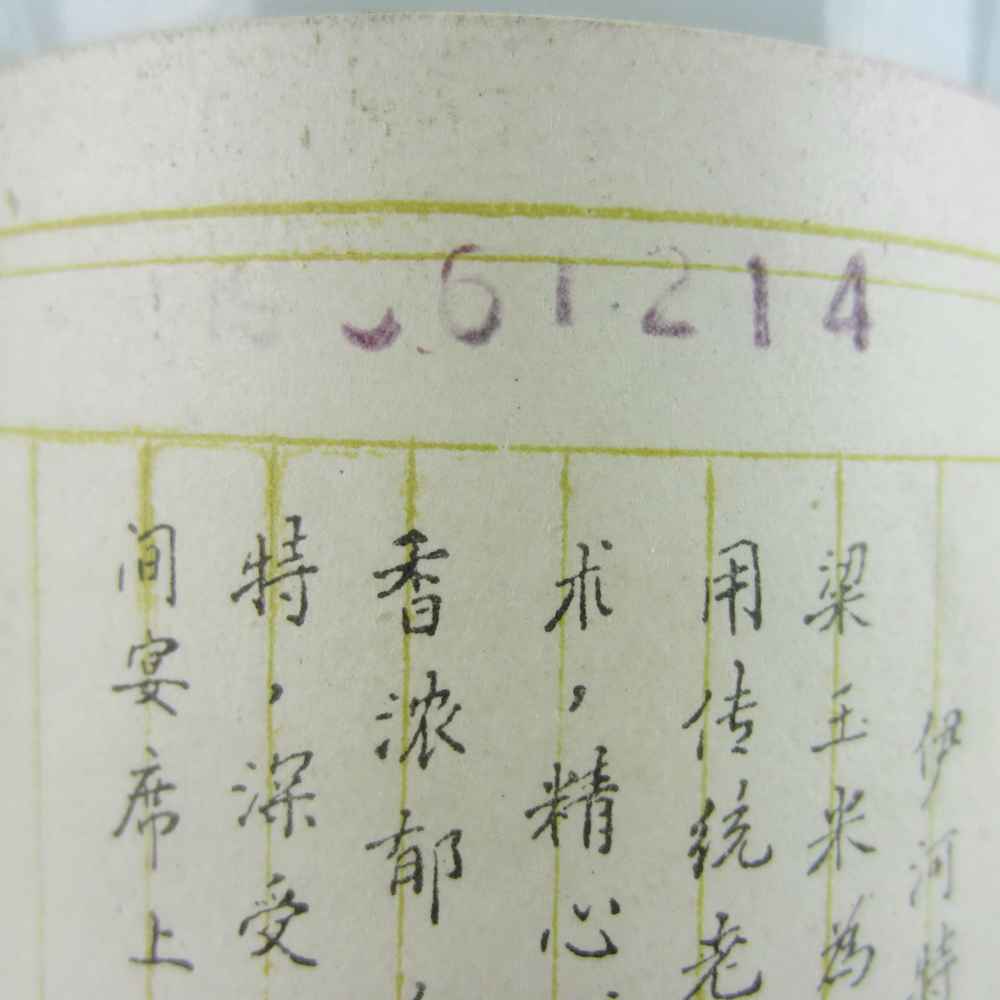 61214
伊河特
粱玉米為
用传统老
术，精心
香浓郁，
特，深受
间宴席上